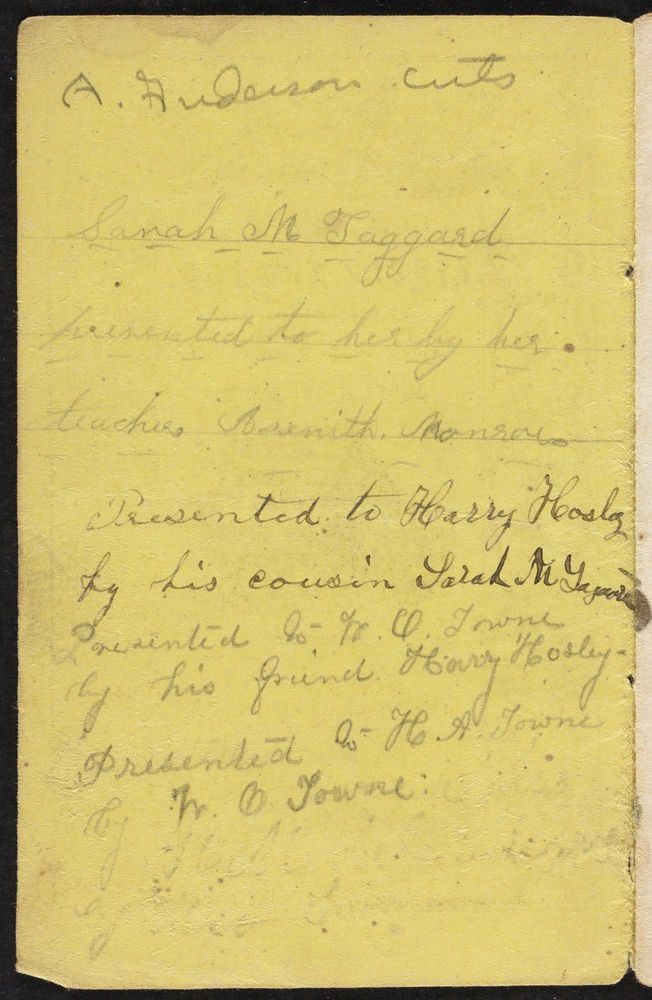 A. Anderson cuts
Sarah M Taggard
presented to her by her
teacher Asenith Monroe
Presented to Harry Hosley
by his cousin Sarah M Taggard
Presented to W. O. Towne
by his friend Harry Hosley-
Presented to H A. Towne
by W. O Towne.